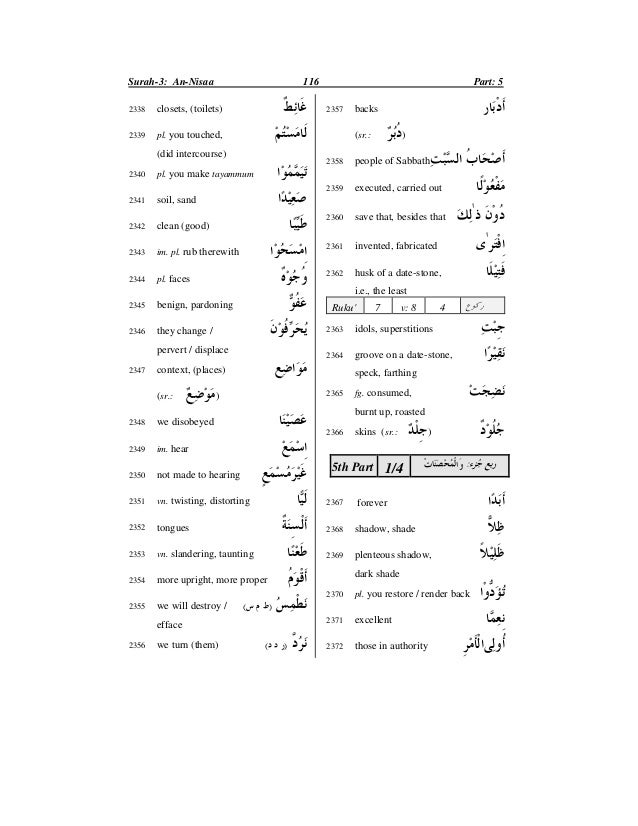 Surah-3: An-Nisaa 116 Part: 5
2338 closets, (toilets) غَائِطٌ
2339 pl. you touched, لَامَسْتُمْ
(did intercourse)
2340 pl. you make tayammum تَيَمَّمُوْا
2341 soil, sand صَعِيْدًا
2342 clean (good) طَيِّبًا
2343 im. pl. rub therewith امْسَحُوْا
2344 pl. faces وُجُوْهٌ
2345 benign, pardoning عَفُوٌّ
2346 they change / يُحَرِّفُوْنَ
pervert / displace
2347 context, (places) مَوَاضِعِ
(sr.: مَوْضِعٌ)
2348 we disobeyed عَصَيْنَا
2349 im. hear اِسْمَعْ
2350 not made to hearing غَيْرَ مُسْمَعٍ
2351 vn. twisting, distorting لَيًّا
2352 tongues أَلْسِنَةٌ
2353 vn. slandering, taunting طَعْنًا
2354 more upright, more proper أَقْوَمُ
2355 we will destroy / (ط م س) نَطْمِسُ
efface
2356 we turn (them) (ر د د) نَرُدَّ
2357 backs أَدْبَار
(sr.: دُبُرٌ)
2358 people of Sabbath أَصْحَابُ السَّبْتِ
2359 executed, carried out مَفْعُوْلًا
2360 save that, besides that دُوْنَ ذٰلِكَ
2361 invented, fabricated اِفْتَرٰى
2362 husk of a date-stone, فَتِيْلًا
i.e., the least
Ruku' 7 v: 8 4 ركوع
2363 idols, superstitions جِبْتِ
2364 groove on a date-stone, نَقِيْرًا
speck, farthing
2365 fg. consumed, نَضِجَتْ
burnt up, roasted
2366 skins (sr.: جِلْدٌ) جُلُوْدٌ
5th Part 1/4 ربع جُزء: وَالْمُحْصَنَاتْ
2367 forever أَبَدًا
2368 shadow, shade ظِلًّا
2369 plenteous shadow, ظَلِيْلًا
dark shade
2370 pl. you restore / render back تُؤَدُّوْا
2371 excellent نِعِمَّا
2372 those in authority أُولِى الْأَمْرِ